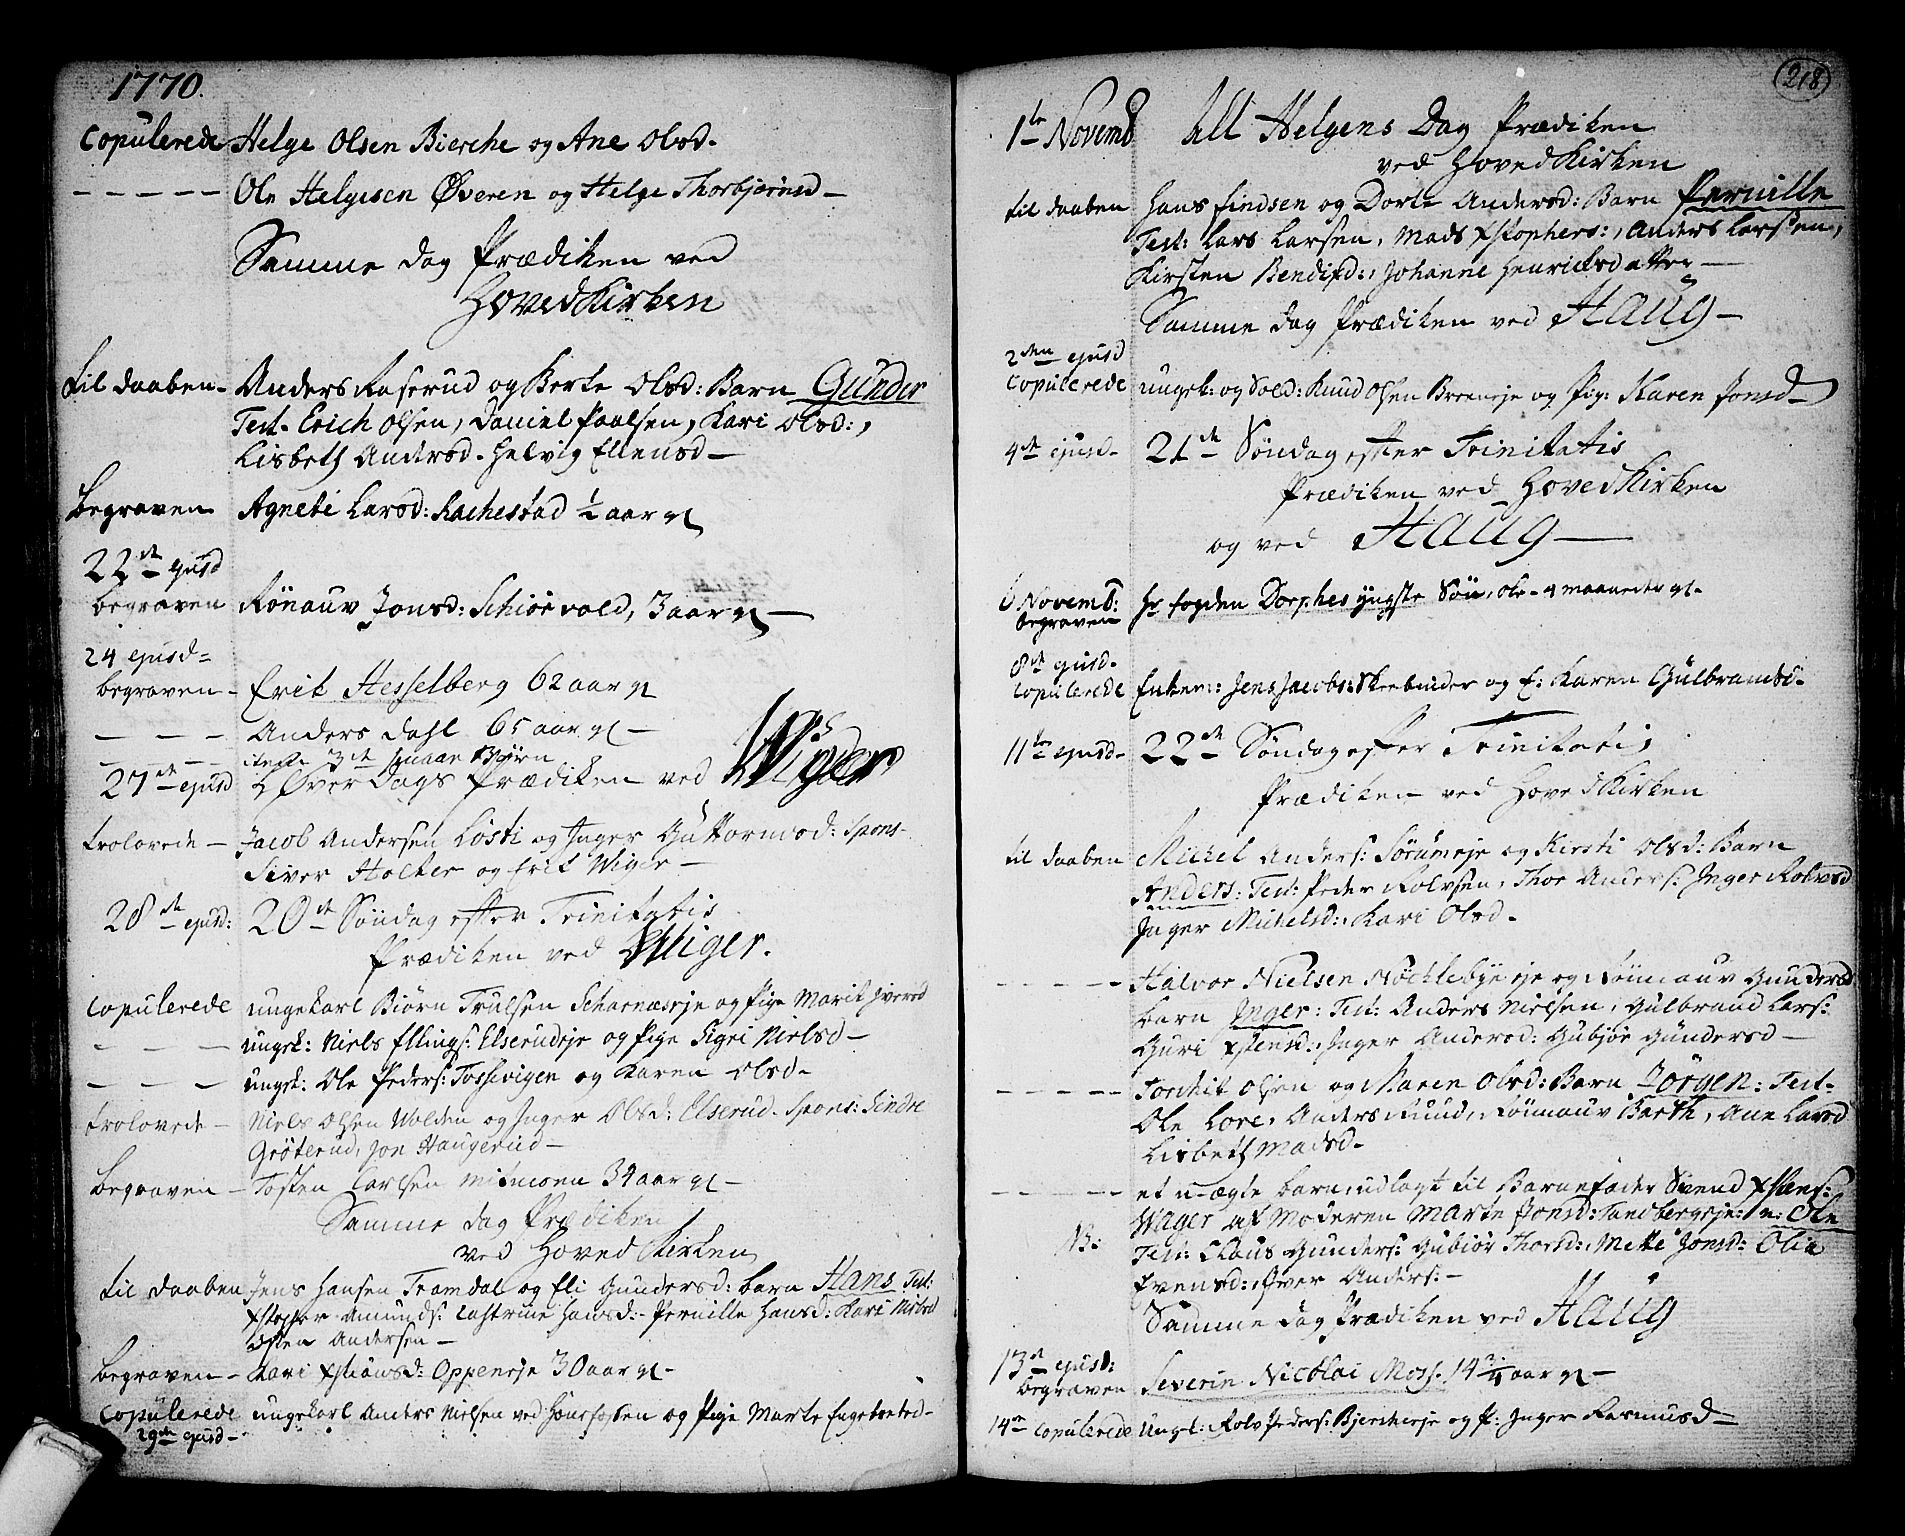 1770.
Copulerede Helge Olsen Bierche og Ane Olsd.
— — — — — Ole Helgesen Øveren og Helge Thorbjørnsd —
Samme dag Prædiken ved
HovedKirken
til daaben — Anders Raserud og Berte Olsd: Barn Gunder
Test. Erich Olsen, Daniel Paalsen, Kari Olsd:,
Lisbeth Andersd. Helvig Ellensd —
begraven Agnete Larsd: Rachestad ½ aar gl
22de ejusd
begraven Rønauv Jonsd: Schiørvold, 3 aar gl —
24 ejusd=
begraven — Erik Hesselberg 62 aar gl
— — — Anders Dahl 65 aar gl —
27de ejusd Øver Dags Prædiken ved Wiger
trolovede — Jacob Andersen Losti og Inger Guttormsd: Spons.
Siver Holter og Erik Wiger —
28de ejusd: 20de Søndag efter Trinitatis
Prædiken ved Wiger.
Copulerede ungekarl Biørn Trulsen Scharnæseje og Pige Marit Iversd
— — — ungk: Niels Ellings: Elserudeje og Pige Sigri Nielsd —
— — — ungk: Ole Peders: Tossevigen og Karen Olsd.
trolovede — Niels Olsen Volden og Inger Olsd: Elserud. Spons: Sindre
Grøterud, Jon Haugerud —
begraven — Tosten Carlsen 34 aar gl —
Samme dag Prædiken
ved Hoved Kirken
til daaben Jens Hansen Tramdal og Eli Gundersd: barn Hans Test:
Xstopher Amunds: Cathrine Hansd: Pernille Hansd: Kari Nielsd
Osten Andersen —
begraven — Kari Xstiansd: Oppeneje 30 aar gl —
Copulerede ungekarl Anders Nielsen ved Hansfossen og Pige Marte
29de ejusd —
218
1te Novemb All Helgens Dag Prædiken
ved HovedKirken
til daaben Hans Findsen og Dorte Andersd: Barn Pernille
Test: Lars Larsen, Mads Xstophers:, Anders Larssen,
Kirsten Bendixd:, Johanne Henricksdatter —
Samme dag Prædiken ved Haug —
2den ejusd
Copulerede ungk: og Sold: Knud Olsen Breneje og Pig: Karen Jonsd —
4de ejusd — 21de Søndag efter Trinitatis
Prædiken ved HovedKirken
og ved Haug —
6 Novemb:
begraven Hr fogden Dorphes yngste Søn, Ole — 4 maaneder gl.
8de ejusd.
Copulerede Enkem: Jens Jacobs: Skeebinder og E: Karen Gulbrandsd.
11te ejusd — 22de Søndag efter Trinitatis
Prædiken ved HovedKirken
til daaben Michel Anders: Sørumeje og Kirsti Olsd: Barn
Anders: Test: Peder Rolvsen, Thor Anders: Inger Rolvsd
Inger Michelsd:, Kari Olsd.
— — — — Halvor Nielsen Nøchlebyeeje og Rønnauv Gundersd
barn Inger: Test: Anders Nielsen, Gulbrand Lars:
Guri Xstensd:, Inger Andersd: Gubjør Gundersd —
— — — — Torchil Olsen og Maren Olsd: Barn Jørgen: Test.
Ole Lore, Anders Ruud, Rønnauv Barth, Ane Larsd
Lisbeth Madsd.
— — — — et u-ægte barn, udlagt til Barnefader Svend Xstens:
Wager af Moderen Marte Jonsd: Tandbergeje: n: Ole
NB: Test: Claus Gunders: Gubiør Thorsd: Mette Jonsd: Olia
Evensd:, Iver Anders: —
Samme dag Prædiken ved Haug
13de ejusd:
begraven Severin Nicolai Moss. 14 ¾ aar gl —
14de Copulerede Ungk: Rolv Peders: Bjercheeje og P: Inger Rasmusd —